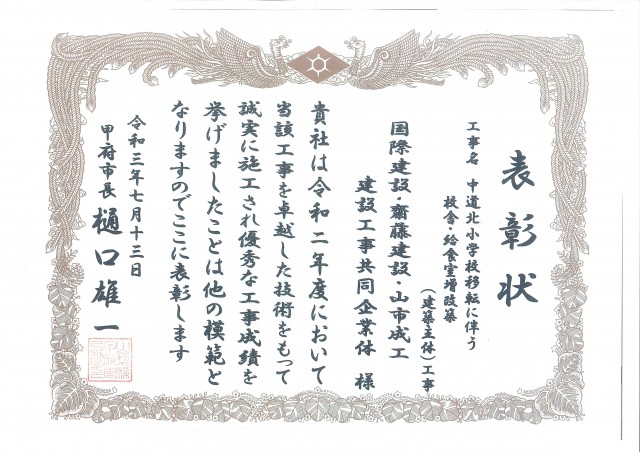 表彰状
工事名 中道北小学校移転に伴う
校舎・給食室増改築
（建築主体）工事
国際建設・齋藤建設・山市成工
建設工事共同企業体 様
貴社は令和二年度において
当該工事を卓越した技術をもって
誠実に施工され優秀な工事成績を
挙げましたことは他の模範と
なりますのでここに表彰します
令和三年七月十三日
甲府市長 樋口雄一